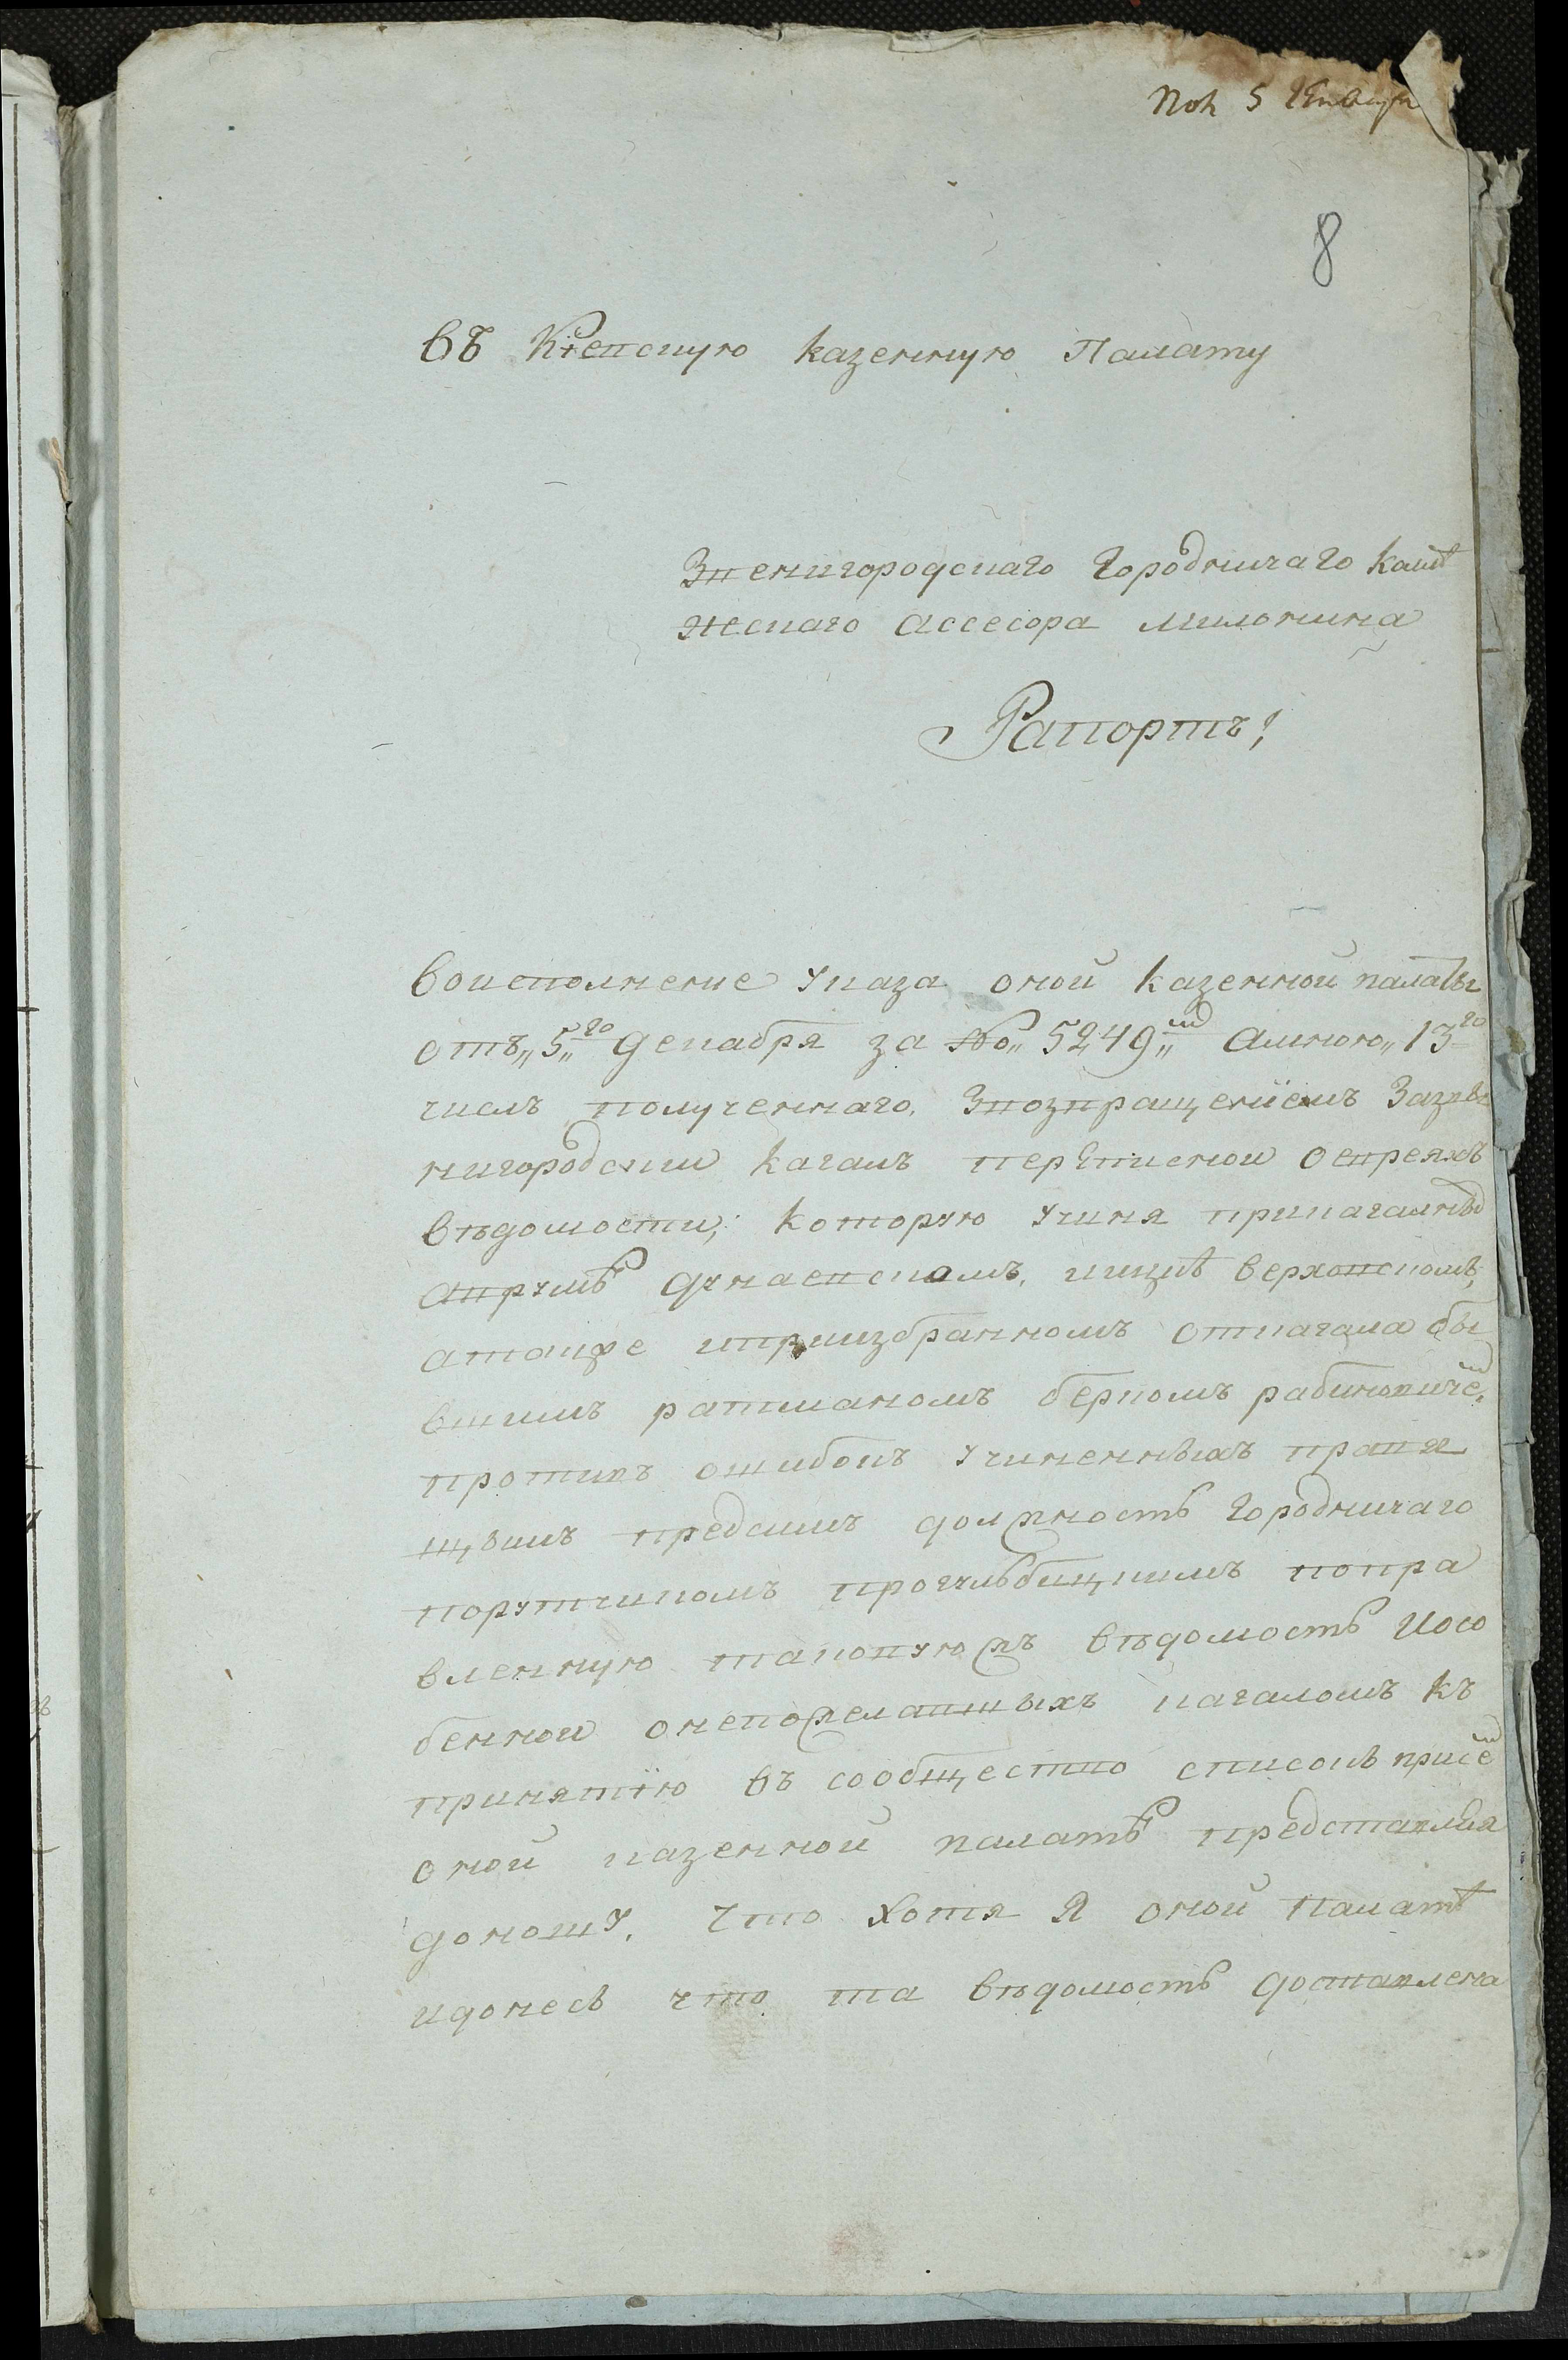 Пол 5 Генваря
8
въ Кіевскую казенную Палату
Звенигородскаго Городничаго колле
жескаго Ассесора Милонина
Рапортъ!
Воисполнение указа оной казенной палаты
отъ„ 5„го декабря за №„ 5249„ю Амною„ 13го
числъ полученнаго. Звозвращениемъ Зазве
нигородскии кагалъ перечисной оевреяхъ
вѣдомости; которую учиня прикагальномъ
дунаевскомъ. верховскомъ,
атакже иприизбранномъ откагала бы
вшимъ ратманомъ беркомъ рабиновичемъ
противъ ошибокъ учиненныхъ правя
щимъ предсимъ должность Городничаго
порутчикомъ попра
вленную таковуюжъ вѣдомость Иосо
бенной онепожелавшыхъ кагаломъ къ
принятию въ сообщество списокъ присемъ
оной казенной палатѣ представляя
доношу, Что Хотя Я оной Палатѣ
идонесъ что та вѣдомость доставлена